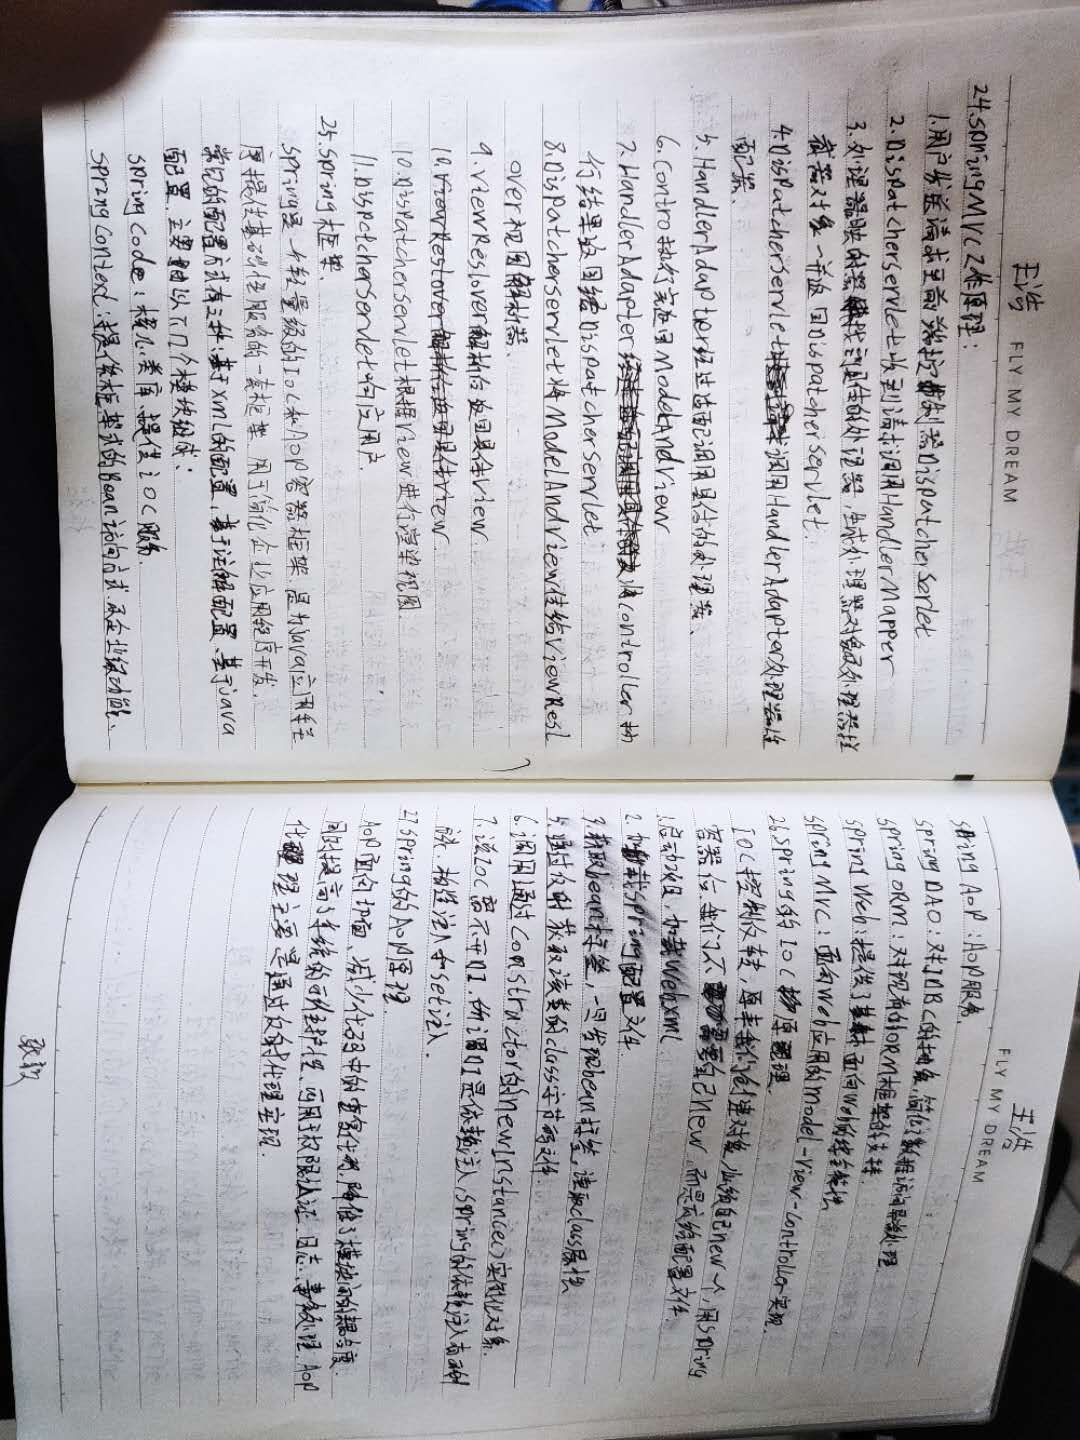 王浩
FLY MY DREAM
24.SpringMVC工作原理:
1.用户发送请求至前端控制器DispatcherServlet
2.DispatcherServlet收到请求调用HandlerMapper
3.处理器映射器找到具体的处理器,生成处理器对象及处理器拦
截器对象一并返回DispatcherServlet.
4.DispatcherServlet调用HandlerAdapter处理器适
配器.
5.HandlerAdapter经过适配调用具体的处理器、
6.Contro执行完返回ModelAndView
7.HandlerAdapter将controller执
行结果返回给DispatcherServlet
8.DispatcherServlet将ModelAndView传给ViewResl
over视图解析器.
9.ViewReslover解析后返回具体View.
10.ViewReslover解析后返回具体View.
10.DispatcherServlet根据View进行渲染视图.
11.DispctcherServlet响应用户.
25.Spring框架.
Spring是一个轻量级的IoC和AOP容器框架.是为Java应用程
序提供基础性服务的一套框架.用于简化企业应用程序开发.
常见的配置方式有三种:基于xml的配置,基于注解配置、基于java
配置.主要由以下几个模块组成:
Spring Code:核心类库.提供IOC服务.
Spring Context:提供框架式的Bean访问方式及企业级功能、
王浩
FLY MY DREAM
Spring AOP:AOP服务.
Spring DAO:对JDBC的抽象,简化了数据访问异常处理.
Spring ORM:对现有的ORM框架的支持.
Spring Web:提供了面向Web的综合特性
Spring MVC:面向Web应用的Model-View-Controller实现.
26.Spring的IOC原理.
IOC控制反转,原来我们创建对象必须自己new一个,用Spring
容器后我们不需要自己new.而是交给配置文件.
1.启动项目.加载Web.xml
2.加载Spring配置文件.
4.获取bean标签,一旦发现bean标签,读取class属性
5.通过反射获取该类的class字节码文件.
6.调用通过Constructor的newInstance()实例化对象.
7.说IOC离不开DI.所谓DI是依赖注入,Spring的依赖注入有两种
方式.构造注入和set注入.
27.Spring的AOP原理.
AOP面向切面、减少代码中的重复代码,降低了模块间的耦合度.
同时提高了系统的可维护性.可用于权限认证、日志、事务处理.AOP
代理主要是通过反射代理实现.